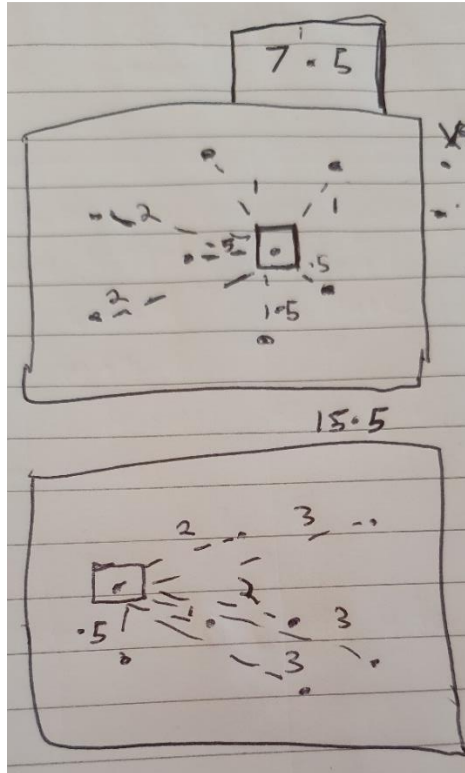 7.5
1
1
2
.5
.5
2
1.5
15.5
2
3
2
1
3
.5
3